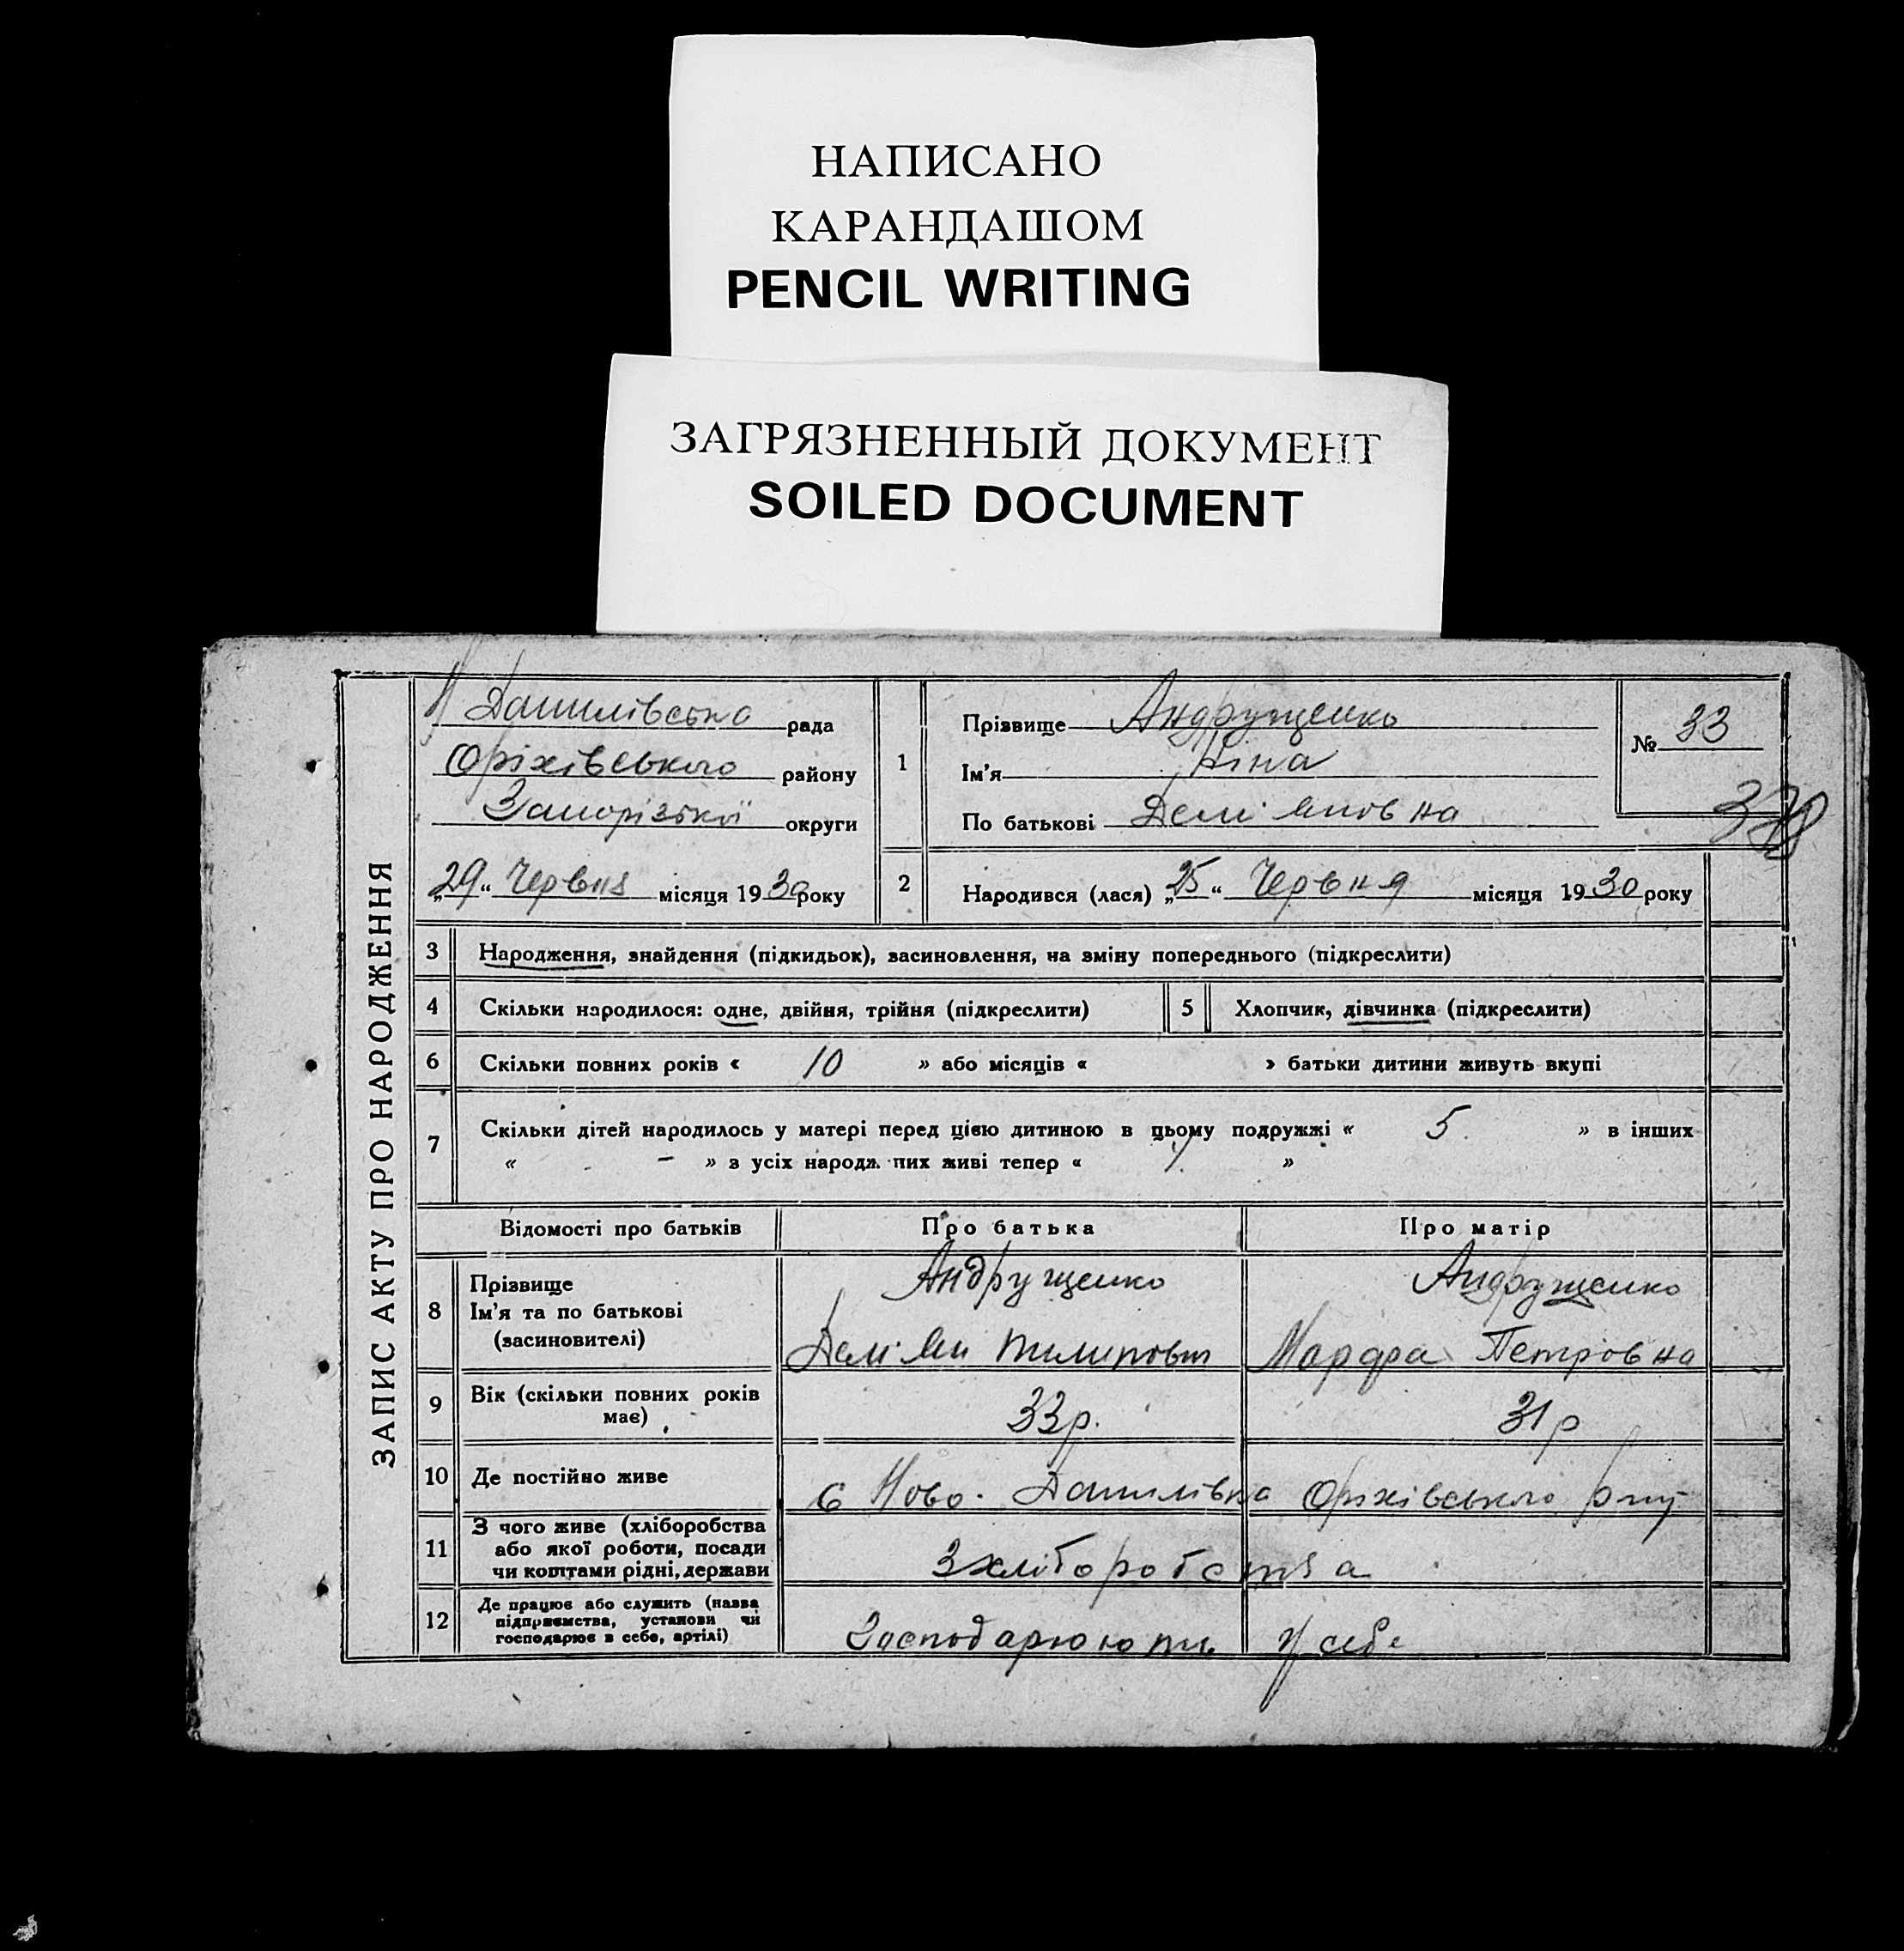 НАПИСАНО
КАРАНДАШОМ
PENCIL WRITING
ЗАГРЯЗНЕННЫЙ ДОКУМЕНТ
SOILED DOCUMENT
ЗАПИС АКТУ ПРО НАРОДЖЕННЯ
Н Данилівська рада
Оріхівського району
Запорізької округи
„29“ Червня місяця 1930 року
1 Прізвище Андрущенко
Ім'я Ніна
По батькові Дем'яновна
№ 33
378
2 Народився (лася) „25“ Червня місяця 1930 року
3 Народження, знайдення (підкидьок), засиновлення, на зміну попереднього (підкреслити)
4 Скільки народилося: одне, двійня, трійня (підкреслити) 5 Хлопчик, дівчинка (підкреслити)
6 Скільки повних років « 10 » або місяців « » батьки дитини живуть вкупі
7 Скільки дітей народилось у матері перед цією дитиною в цьому подружжі « 5 » в інших
« – » з усіх народж них живі тепер « »
Відомості про батьків Про батька Про матір
8 Прізвище Андрущенко Андрущенко
Ім'я та по батькові
(засиновителі) Дем'ян Марфа Петровна
9 Вік (скільки повних років має) 33р. 31р
10 Де постійно живе с Ново-Данилівка Оріхівського р-ну
11 З чого живе (хліборобства
або якої роботи, посади
чи коштами рідні, держави З хліборобства
12 Де працює або служить (назва
підприємства, установи чи
господарює в себе, артілі) Господарюють у себе